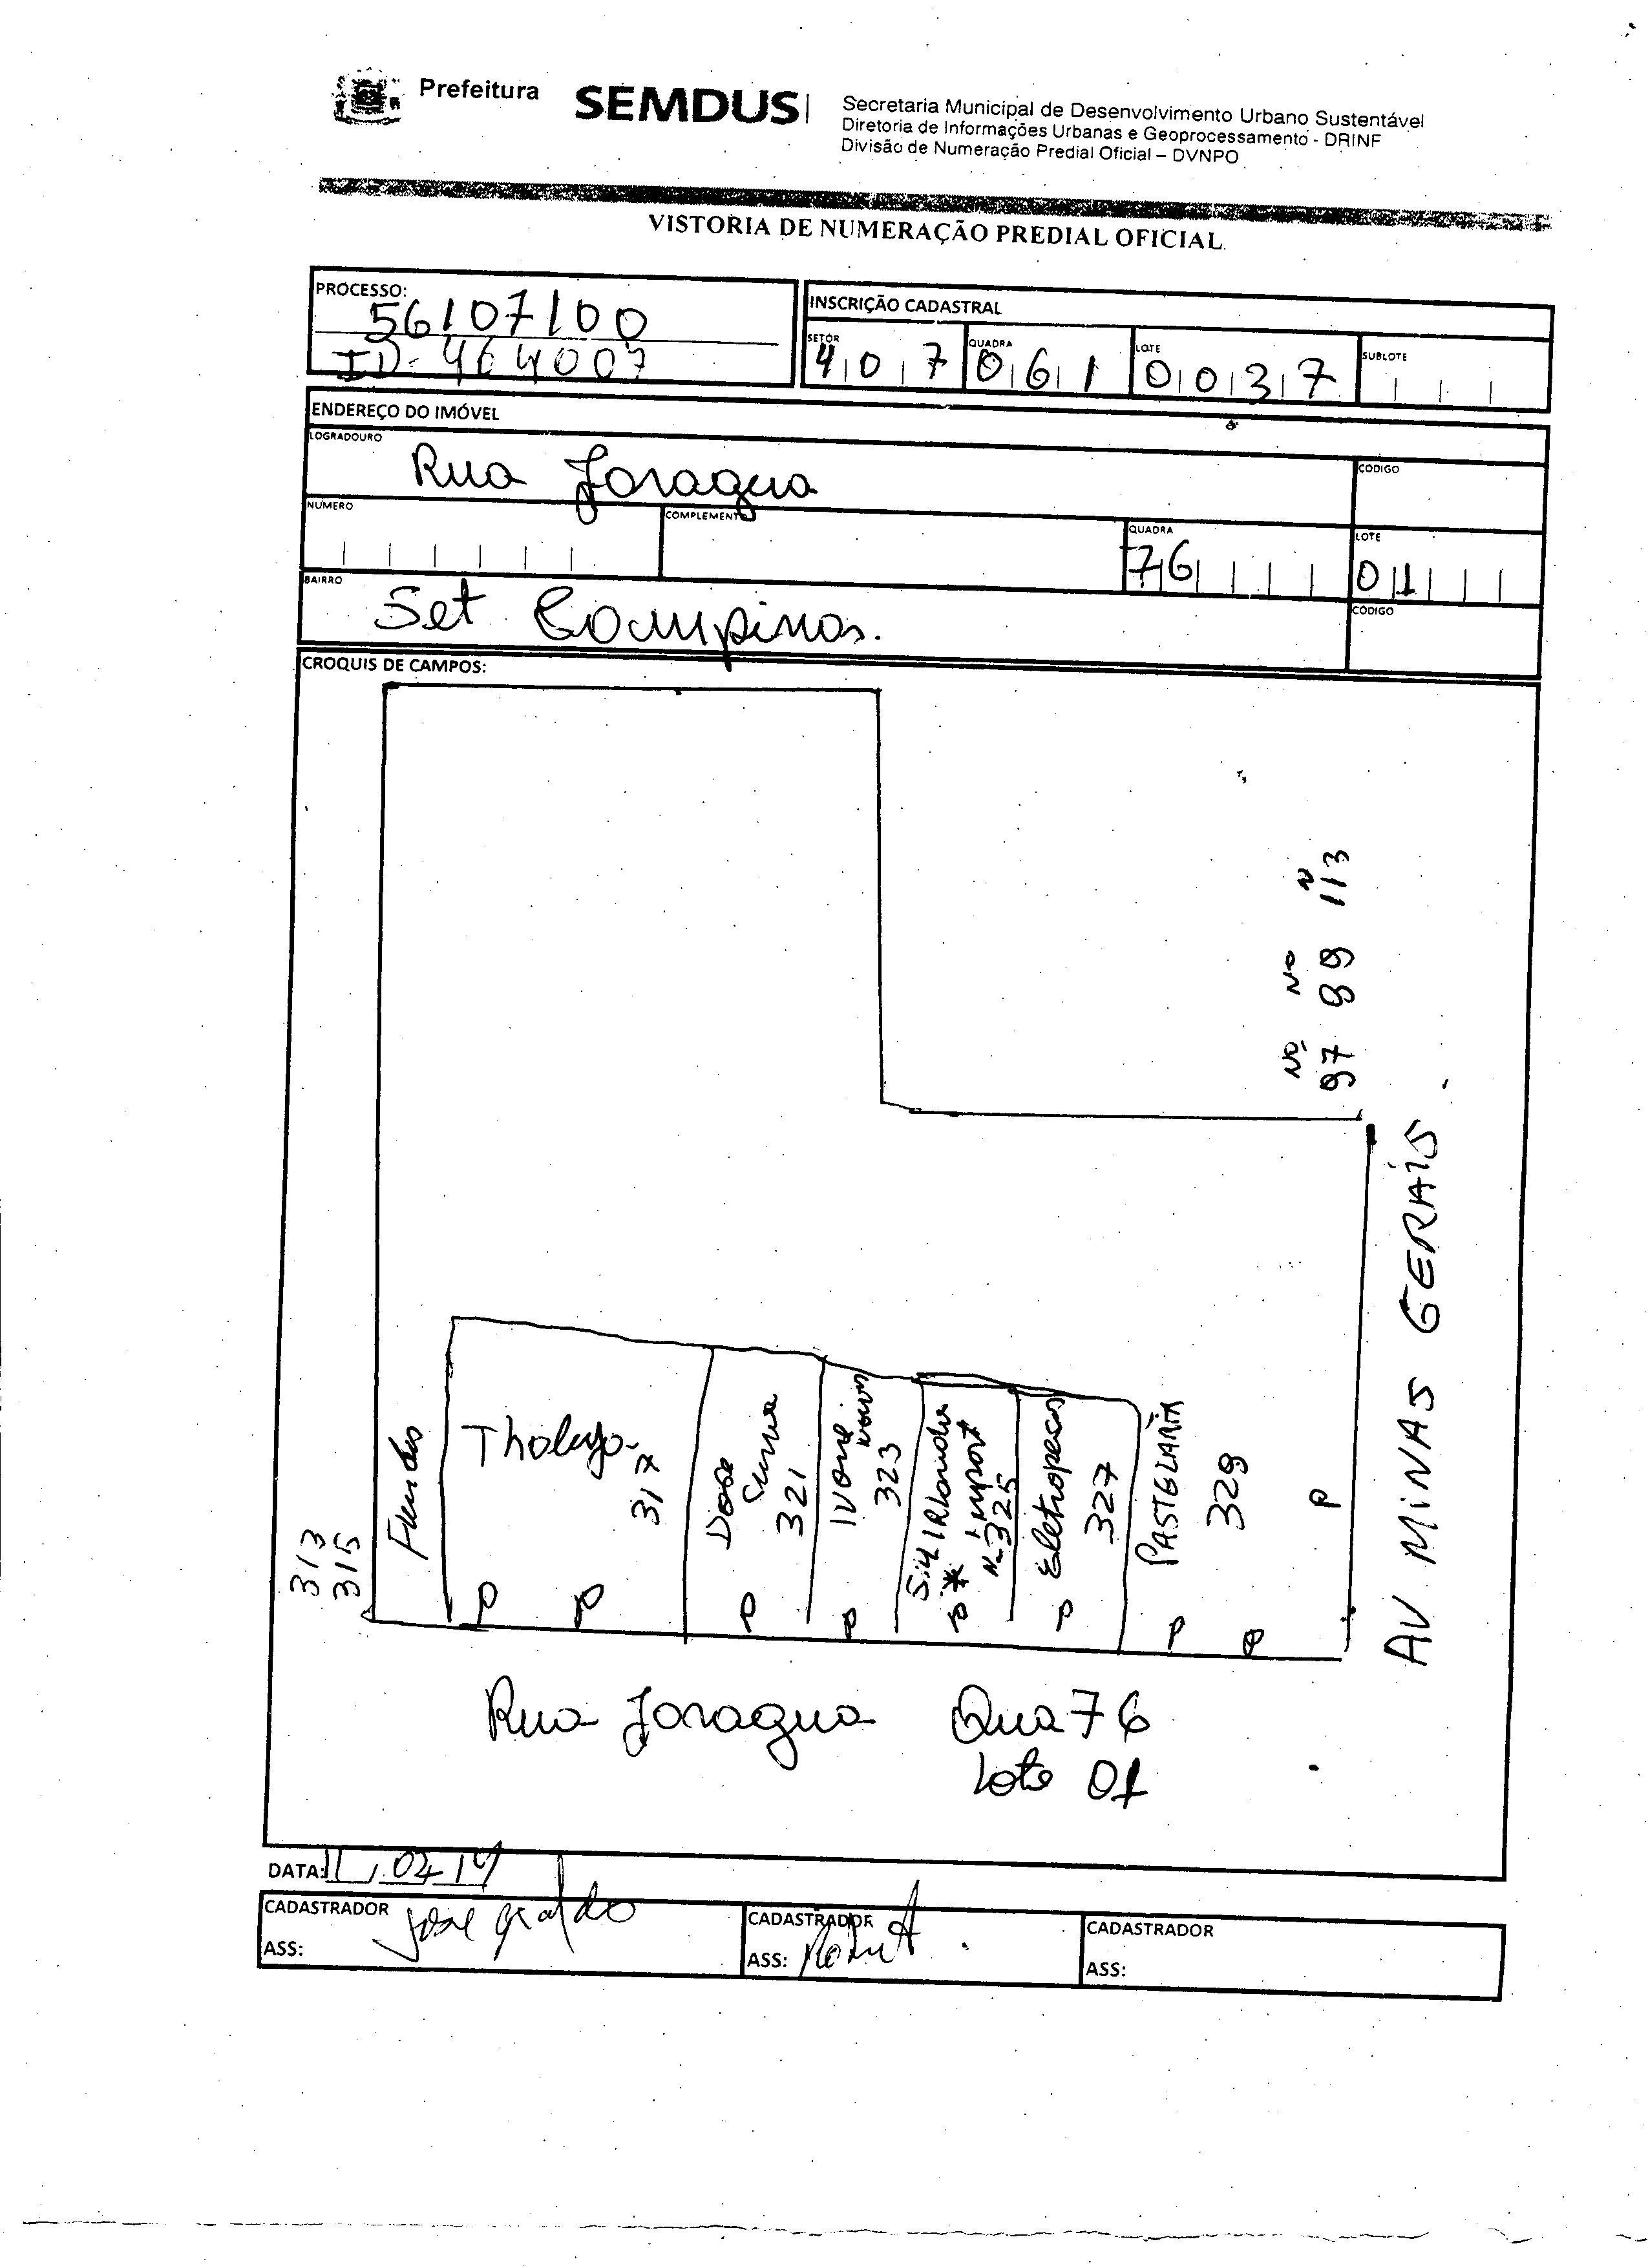 Prefeitura
SEMDUS
Secretaria Municipal de Desenvolvimento Urbano Sustentável
Diretoria de Informações Urbanas e Geoprocessamento - DRINF
Divisão de Numeração Predial Oficial – DVNPO
VISTORIA DE NUMERAÇÃO PREDIAL OFICIAL
PROCESSO:
56107100
ID-464007
INSCRIÇÃO CADASTRAL
SETOR
407
QUADRA
061
LOTE
0037
SUBLOTE
ENDEREÇO DO IMÓVEL
LOGRADOURO
Rua Jaragua
CÓDIGO
NÚMERO
COMPLEMENTO
QUADRA
76
LOTE
01
BAIRRO
Set Campinas.
CÓDIGO
CROQUIS DE CAMPOS:
Nº Nº Nº
97 99 113
AV MINAS GERAIS
313
315
Fundos
317
321
Ivone
323
import
Nº 325
Eletropeças
327
PASTELARIA
329
P
P P P P P P P P
Rua Jaragua Qua 76
Lote 01
DATA: 11.02.14
CADASTRADOR
ASS: Jose Geraldo
CADASTRADOR
ASS:
CADASTRADOR
ASS: